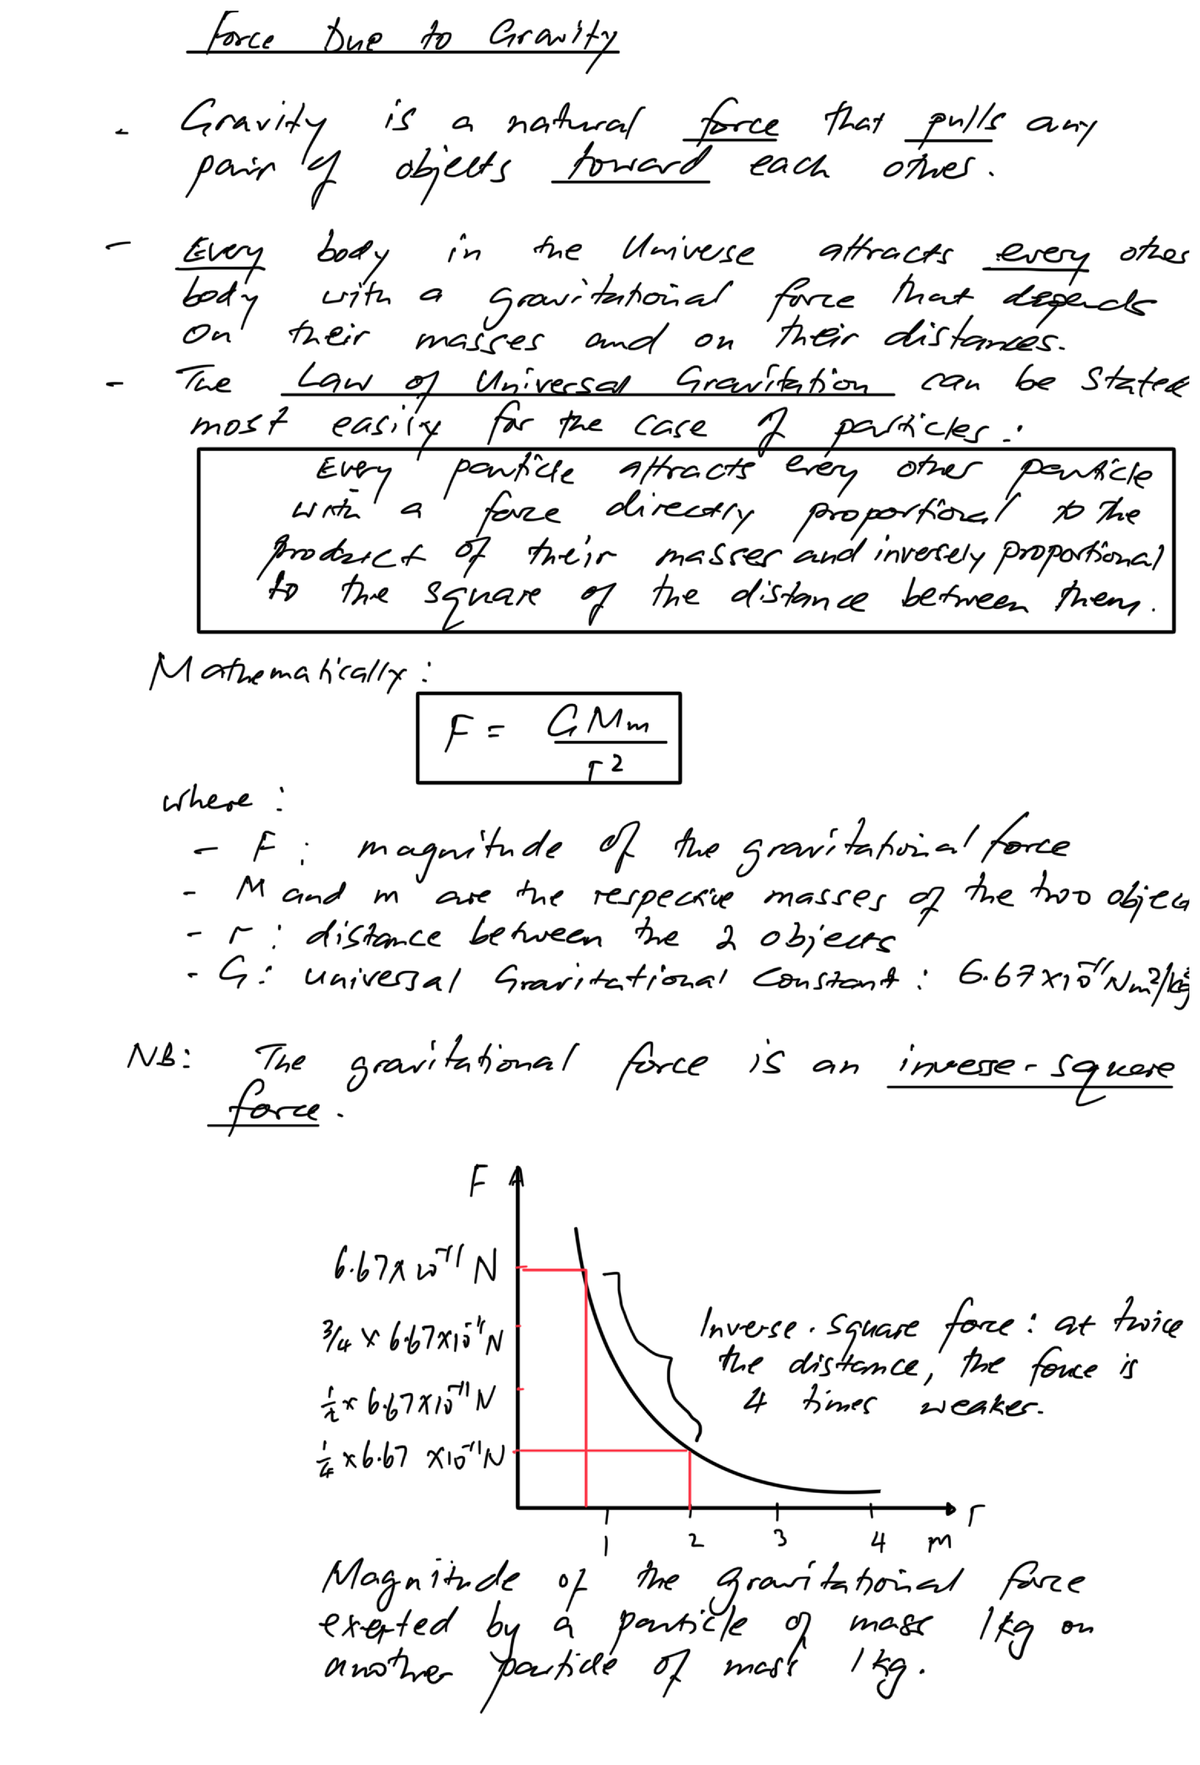 Force Due to Gravity
- Gravity is a natural force that pulls any
pair of objects toward each other.
- Every body in the Universe attracts every other
body with a gravitational force that depends
on their masses and on their distances.
- The Law of Universal Gravitation can be stated
most easily for the case of particles:
Every particle attracts every other particle
with a force directly proportional to the
product of their masses and inversely proportional
to the square of the distance between them.
Mathematically:
F = GMm / r²
where:
- F: magnitude of the gravitational force
- M and m are the respective masses of the two objec
- r: distance between the 2 objects
- G: Universal Gravitational Constant: 6.67×10⁻¹¹Nm²/kg²
NB: The gravitational force is an inverse-square
force.
F
6.67×10⁻¹¹ N
3/4 × 6.67×10⁻¹¹N
½× 6.67×10⁻¹¹ N
¼×6.67 ×10⁻¹¹N
Inverse-square force: at twice
the distance, the force is
4 times weaker.
1 2 3 4 m r
Magnitude of the gravitational force
exerted by a particle of mass 1kg on
another particle of mass 1kg.